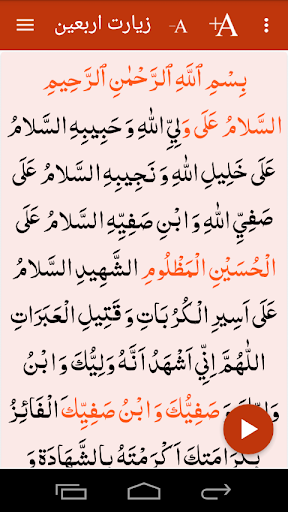 زیارت اربعین -A +A
بِسْمِ ٱللَّهِ ٱلرَّحْمٰنِ ٱلرَّحِيمِ
السَّلامُ عَلَى وَلِيِّ اللهِ وَ حَبِيبِهِ السَّلامُ
عَلَى خَلِيلِ اللهِ وَ نَجِيبِهِ السَّلامُ عَلَى
صَفِيِّ اللهِ وَ ابْنِ صَفِيِّهِ السَّلامُ عَلَى
الْحُسَيْنِ الْمَظْلُومِ الشَّهِيدِ السَّلامُ
عَلَى أَسِيرِ الْكُرُبَاتِ وَ قَتِيلِ الْعَبَرَاتِ
اللَّهُمَّ إِنِّي أَشْهَدُ أَنَّهُ وَلِيُّكَ وَ ابْنُ
وَلِيِّكَ وَ صَفِيُّكَ وَ ابْنُ صَفِيِّكَ الْفَائِزُ
بِكَرَامَتِكَ أَكْرَمْتَهُ بِالشَّهَادَةِ وَ